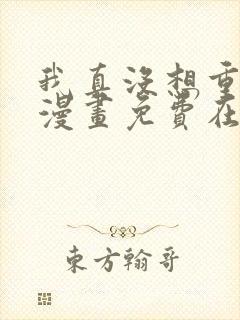 我真没想重
漫畫免費在
東方翰哥